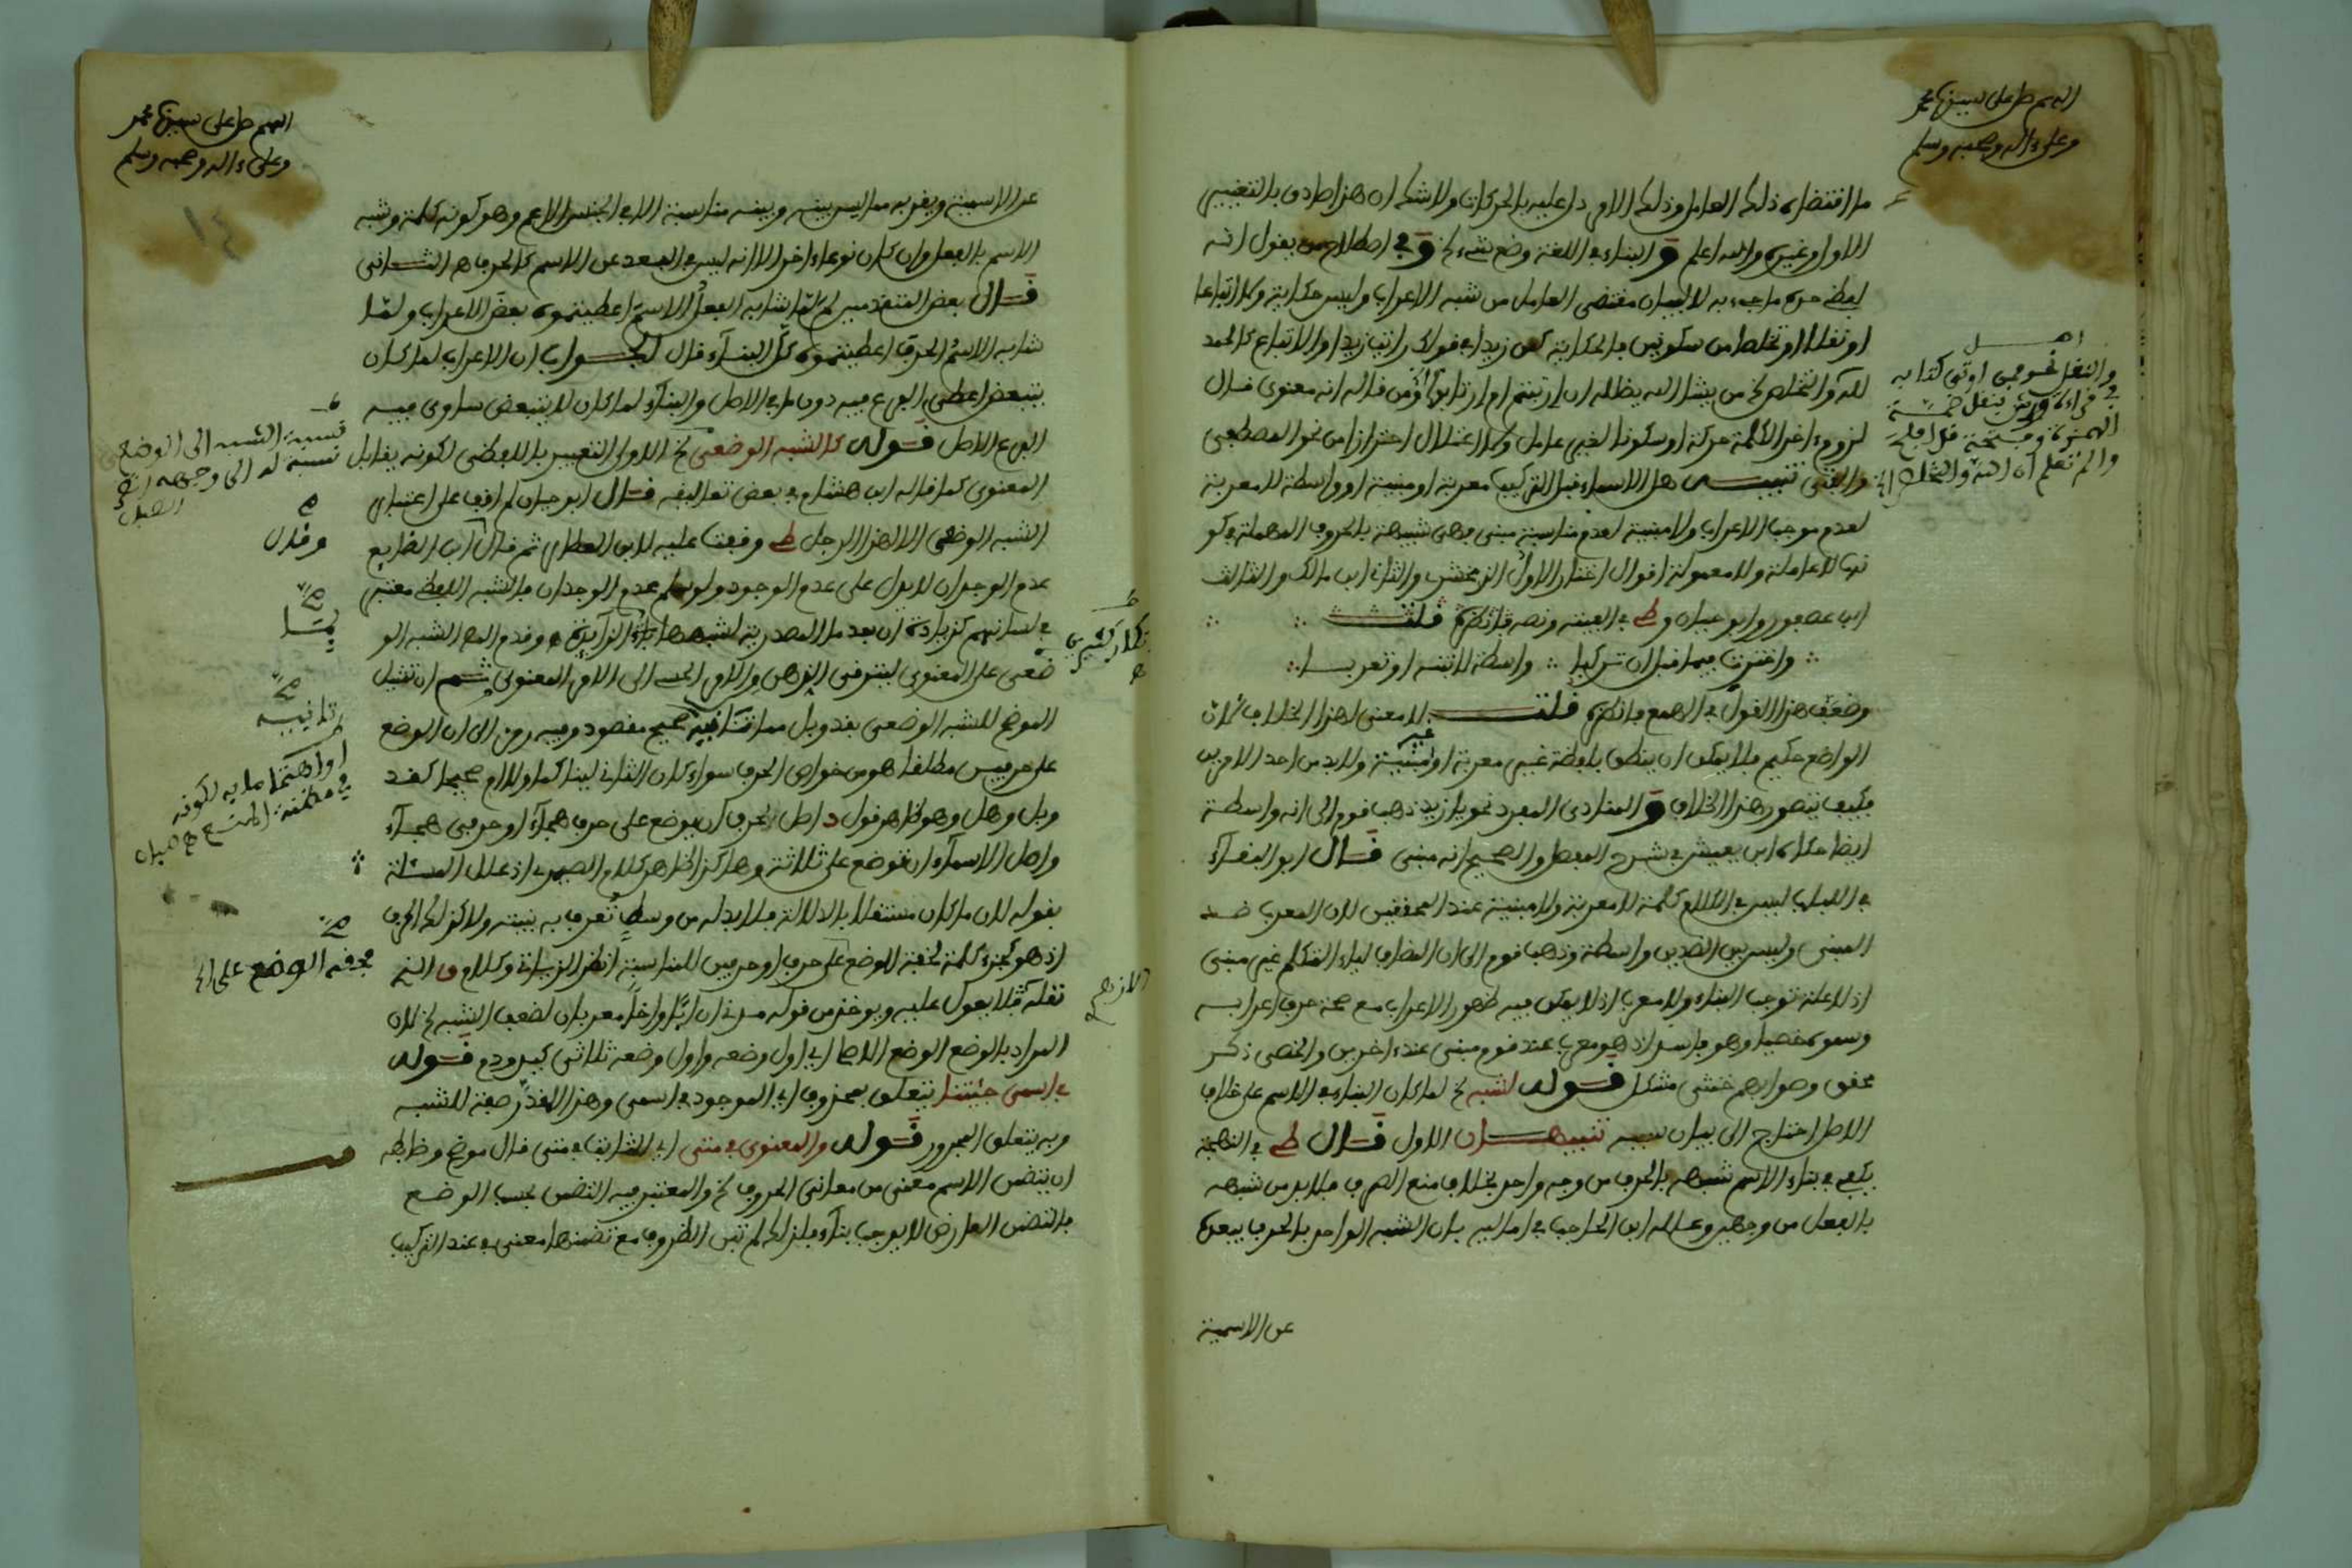 اللهم صل على سيدنا محمد
وعلى ءاله وصحبه وسلم
ما اقتضاه ذلك العامل وذلك الامر دل عليه بالحركات ولا شك ان هذا صادق بالتغيير
الاول وغيره والله اعلم و البناء في اللغة وضع شيء الخ و في اصطلاح من يقول انه
لفظي هو ما جيء به لا لبيان مقتضى العامل من شبه الاعراب وليس حكاية ولا اتباعا
او نقلا او تخلصا من سكونين فالحكاية كمن زيدا في قولك رايت زيدا والاتباع كالحمد
لله والتخلص نحو من يشا الله يضلله ومن قال انه معنوي قال
لزوم ءاخر الكلمة حركة او سكونا لغير عامل ولا اعتلال احترازا من نحو المصطفى
والفتى تنبيه هل الاسماء قبل التركيب معربة او مبنية او واسطة لا معربة
لعدم موجب الاعراب ولا مبنية لعدم مناسبة مبني وهي شبيهة بالحروف المهملة في كو
نها لا عاملة ولا معمولة اقوال اختار الاول الزمخشري والثاني ابن مالك والثالث
ابن عصفور وابو حيان و ط في الفيته ونصه فانظره قلت
واخترت فيما قبل ان تركبا واسطة لا تبنه او تعربا
وضعف هذا القول في الهمع فانظره قلت لا معنى لهذا الخلاف لان
الواضع حكيم فلا يمكن ان ينطق بلفظة غير معربة او غير مبنية ولا بد من احد الامرين
فكيف يتصور هذا الخلاف و المنادى المفرد نحو يا زيد ذهب قوم الى انه واسطة
ايضا حكاه ابن يعيش في شرح المفصل والصحيح انه مبني قال ابو البقاء
في اللباب ليس في الكلام كلمة لا معربة ولا مبنية عند المحققين لان المعرب ضد
المبني وليس بين الضدين واسطة وذهب قوم الى ان المضاف لياء المتكلم غير مبني
اذ لا علة توجب البناء ولا معرب اذ لا يمكن فيه ظهور الاعراب مع صحة حرف اعرابه
وسموه خصيا وهو فاسد اذ هو معرب عند قوم مبني عند ءاخرين والخصي ذكر
محقق وصوابهم خنثى مشكل قوله لشبه الخ لما كان البناء في الاسم على خلاف
الاصل احتاج الى بيان سببه تنبيهان الاول قال ط في البهجة
يكفي في بناء الاسم شبهه بالحرف من وجه واحد بخلاف منع الصرف فلا بد من شبهه
بالفعل من وجهين وعلله ابن الحاجب في اماليه بان الشبه الواحد بالحرف يبعده
عن الاسمية
والنقل نحو فمن اوتي كتابه
في قراءة ورش بنقل ضمة
الهمزة وفتحة قد افلح
والم تعلم ان الله
اللهم صل على سيدنا محمد
وعلى ءاله وصحبه وسلم
١٤
عن الاسمية ويقربه مما ليس بينه وبينه مناسبة الا في الجنس الاعم وهو كونه كلمة وشبه
الاسم بالفعل وان كان نوعا ءاخر الا انه ليس في البعد عن الاسم كالحرف ه الثاني
قال بعض المتقدمين لم لما شابه الفعل الاسم اعطيتموه بعض الاعراب ولما
شابه الاسم الحرف اعطيتموه كل البناء قال الجواب ان الاعراب لما كان
يتبعض اعطي الفرع فيه دون ما في الاصل والبناء لما كان لا يتبعض ساوى فيه
الفرع الاصل قوله كالشبه الوضعي الخ الاولى التعبير باللفظي لكونه يقابل
المعنوي كما قاله ابن هشام في بعض تعاليقه قال ابو حيان لم اقف على اعتبار
الشبه الوضعي الا لهذا الرجل ط وقفت عليه لابن العطار ثم قال ابن الضايع
عدم الوجدان لا يدل على عدم الوجود ولو سلم عدم الوجدان فالشبه اللفظي معتبر
في لسانهم كزيادة ان بعد ما المصدرية لشبهها بما الزائدة وقدم المص الشبه الو
ضعي على المعنوي ليترقى الذهن من الامر الحسي الى الامر المعنوي ثم ان تمثيل
الموضح للشبه الوضعي بقد وبل مما ثانيه صحيح مقصود وفيه رمز الى ان الوضع
على حرفين مطلقا هو من خواص الحرف سواء كان الثاني لينا كما ولا ام صحيحا كقد
وبل وهل وهو ظاهر قول د اصل الحرف ان يوضع على حرف هجاء او حرفي هجاء
واصل الاسماء ان توضع على ثلاثة وهكذا ظاهر كلام الصيمري اذ علل المسئلة
بقوله لان ما كان مستقلا بالدلالة فلا بد له من وسط تعرف به بنيته ولا كذلك الحرف
اذ هو كجزء كلمة فحقه الوضع على حرف او حرفين للمناسبة انظر الزيادة وكلام ق الذي
نقله فلا يعول عليه ويوخذ من قوله من ان ابًا واخًا معربان لضعف الشبه الخ لان
المراد بالوضع الوضع الاصلي اي اول وضعه واول وضعه ثلاثي كيد ودم قوله
في اسمي جئتنا يتعلق بمحذوف اي الموجود في اسمي وهذا المقدر صفة للشبه
وبه يتعلق المجرور قوله والمعنوي في متى اي الثابت في متى قال موضح وضابطه
ان يتضمن الاسم معنى من معاني الحروف الخ والمعتبر فيه التضمن بحسب الوضع
فالتضمن العارض لا يوجب بناء فلذلك لم تبن الظروف مع تضمنها معنى في عند التركيب
نسبة الشبه الى الوضع
نسبة له الى وجهه انتهى
الصبان
وقال
ثانيه
او اهتماما به لكونه
في مظنة المنع ه صبان
فحقه الوضع على الخ